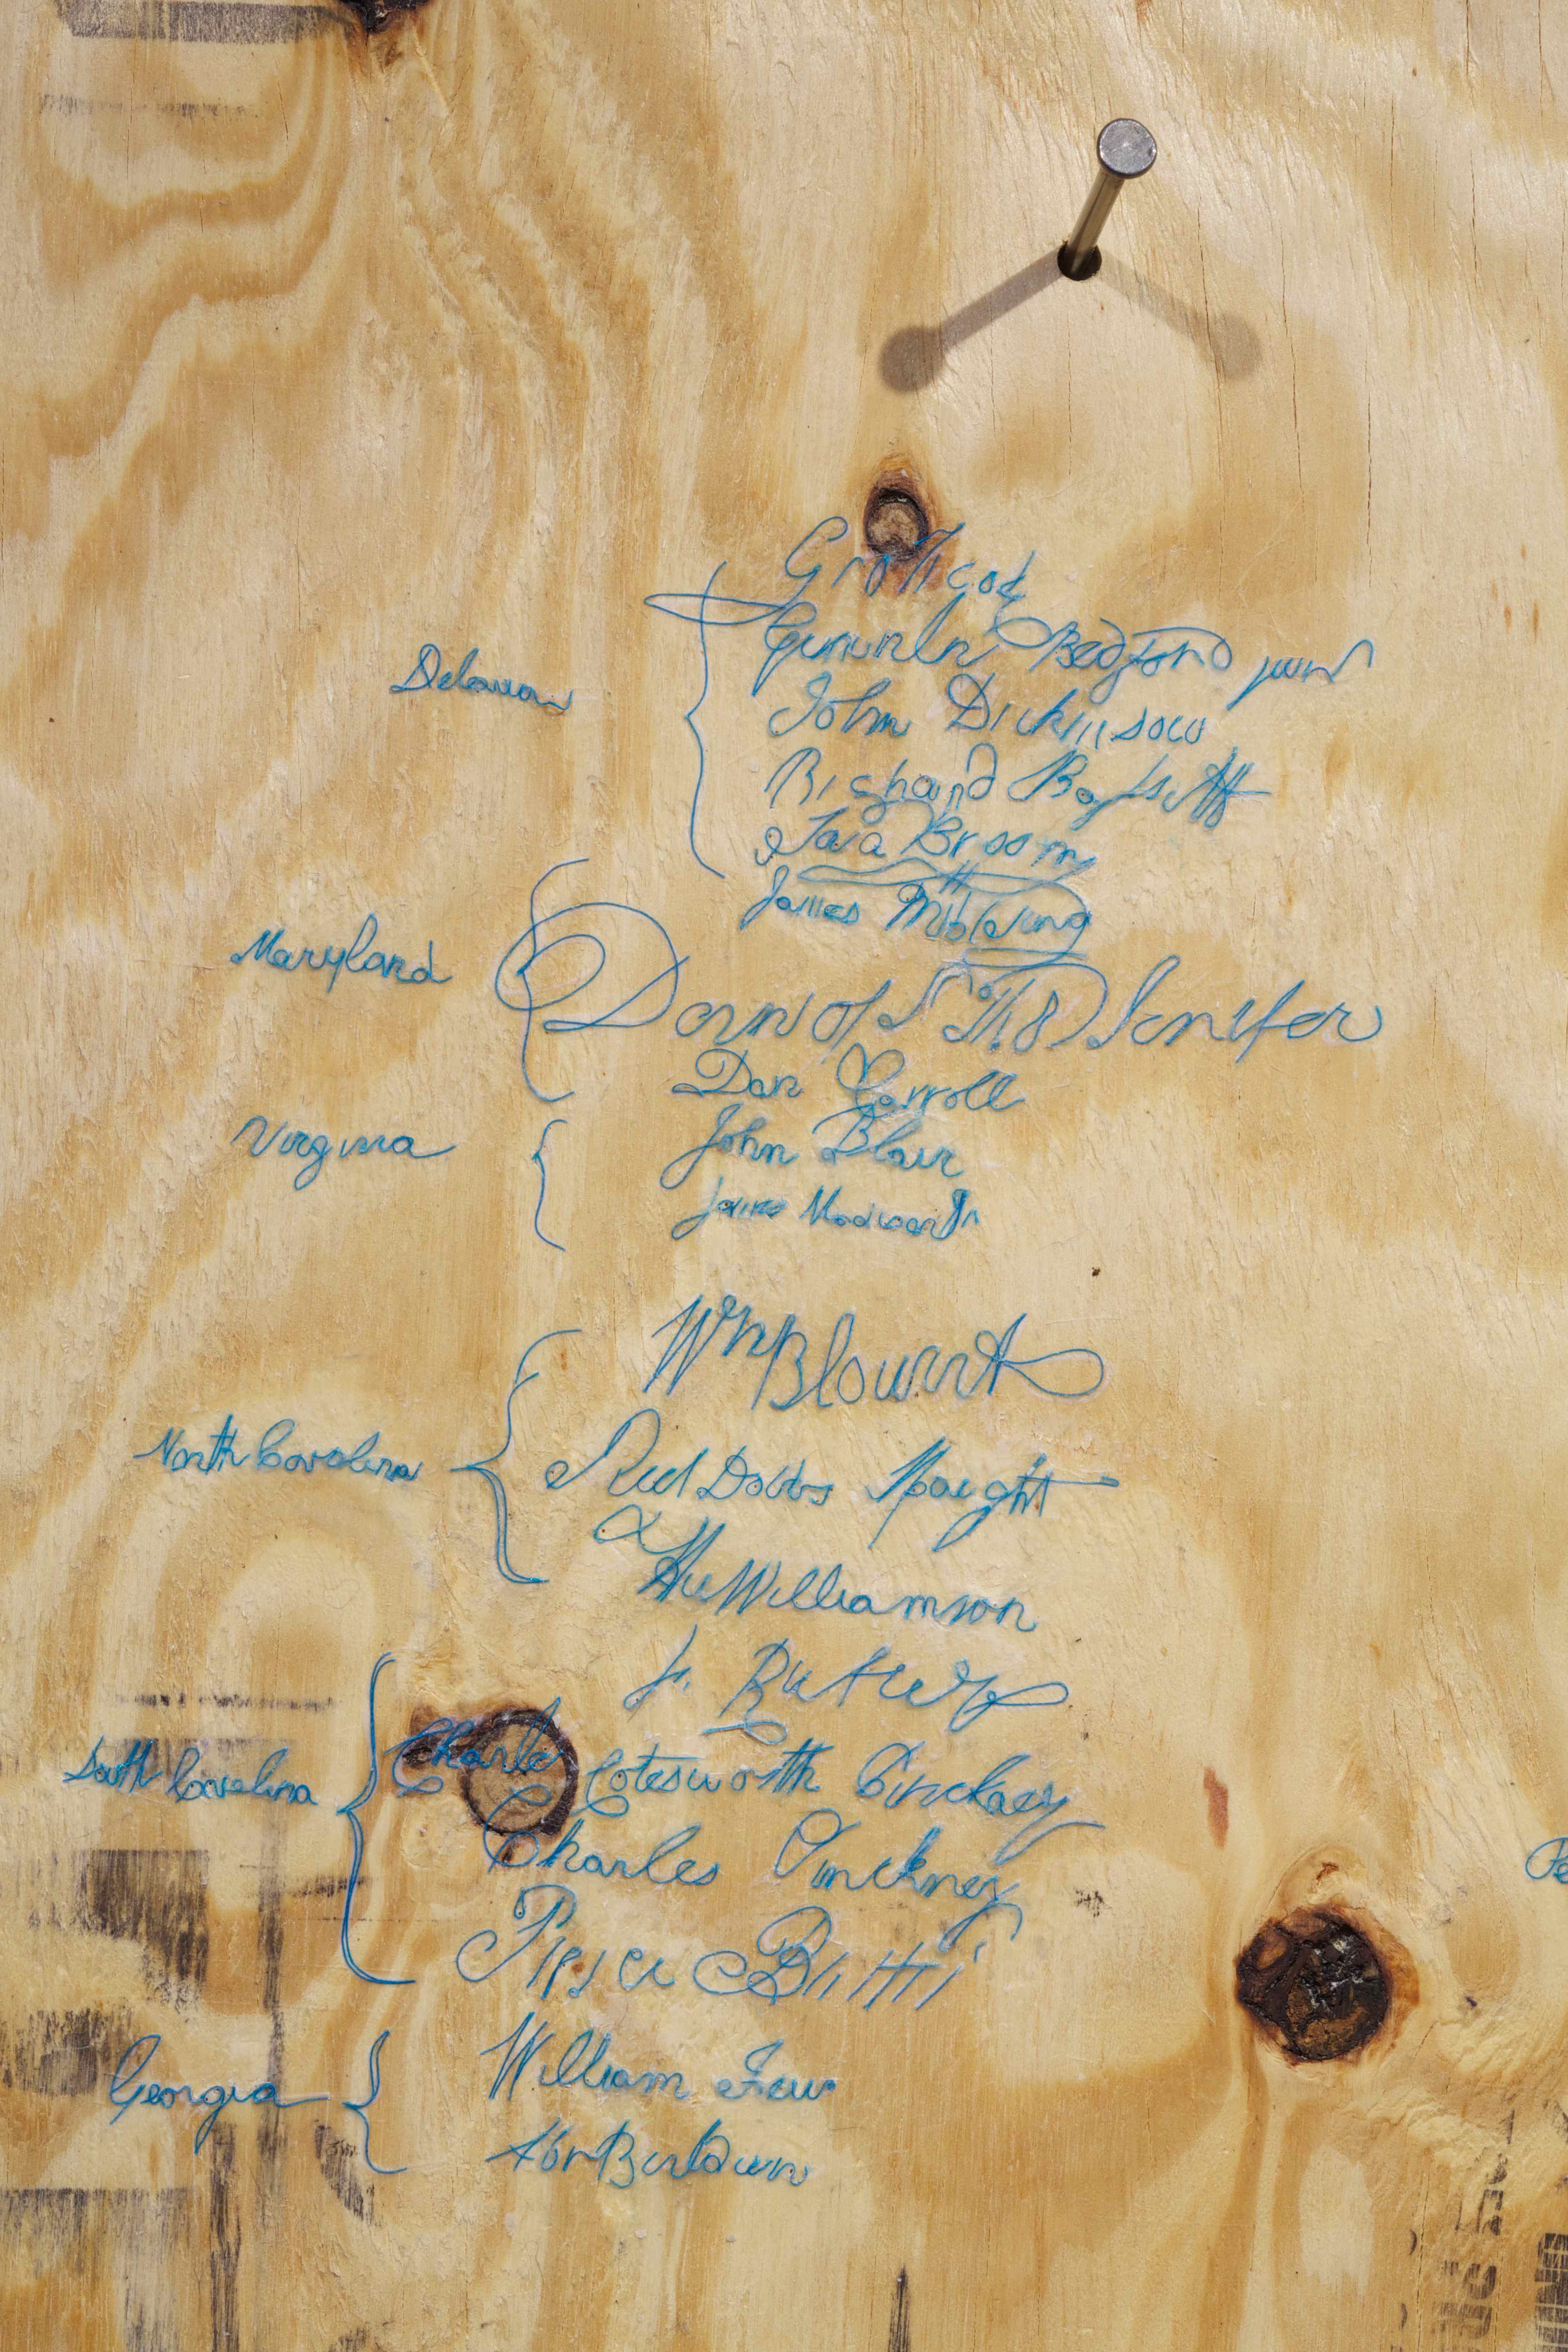 Delawar
Gunnln Bedford junr
John Dickinson
Richard Bassett
Jaca Broom
Maryland
James McHenry
Dan of St Tho Jenifer
Dan Carroll
Virginia
John Blair
James Madison Jr
North Carolina
Wm Blount
Richd Dobbs Spaight
Hu Williamson
South Carolina
J. Rutledge
Charles Cotesworth Pinckney
Charles Pinckney
Pierce Butler
Georgia
William Few
Abr Baldwin